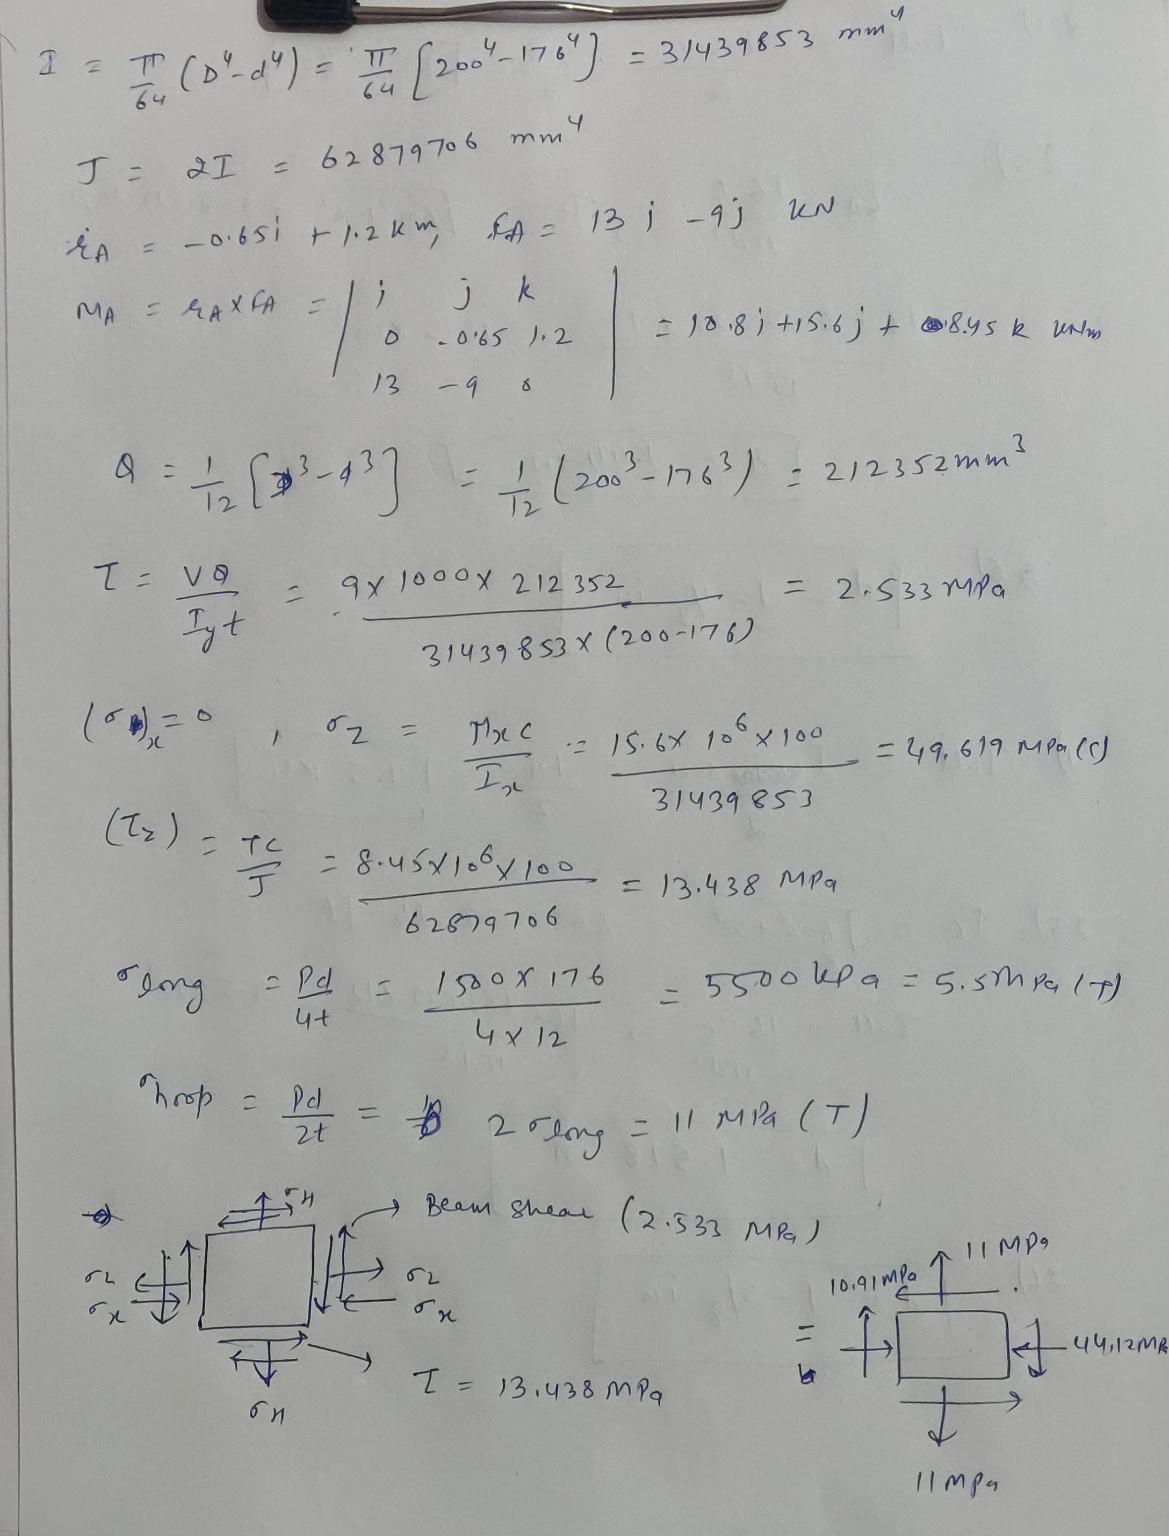 I = π/64 (D⁴-d⁴) = π/64 [200⁴-176⁴] = 31439853 mm⁴
J = 2I = 62879706 mm⁴
rA = -0.65i + 1.2 k m, FA = 13 i -9j kN
MA = rA X FA = | i j k
0 -0.65 1.2
13 -9 0 | = 10.8i +15.6j + 8.45 k kNm
Q = 1/12 [ ³-d³] = 1/12 (200³-176³) = 212352mm³
τ = VQ/Iyt = 9X1000X 212352 / 31439853X(200-176) = 2.533 MPa
(σ)x = 0 , σz = Mxc/Ix = 15.6X 10⁶ X100 / 31439853 = 49.619 MPa (C)
(τz) = TC/J = 8.45X10⁶X100 / 62879706 = 13.438 MPa
σlong = Pd/4t = 1500X176 / 4X12 = 5500 kPa = 5.5MPa (T)
σhoop = Pd/2t = 2σlong = 11 MPa (T)
σH
→ Beam shear (2.533 MPa)
σL σL
σx σx
τ = 13.438 MPa
σH
=
10.91MPa 11 MPa
44.12MPa
11 MPa